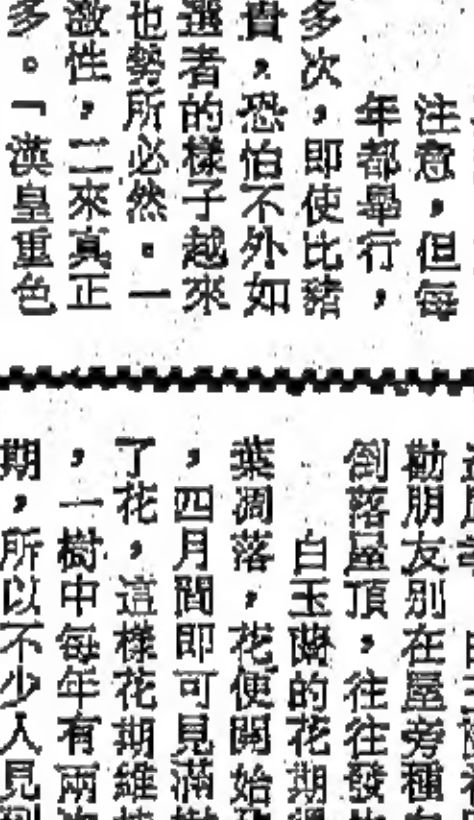 注意，但每
年都舉行，
多次，即使比豬
貴，恐怕不外如
選者的樣子越來
也勢所必然。一
激性，二來真正
多。「漢皇重色
勸朋友別在屋旁種
倒落屋頂，往往發
白玉蘭的花期
葉凋落，花便開始
，四月間即可見滿
了花，這樣花期維
，一樹中每年有兩
期，所以不少人見到